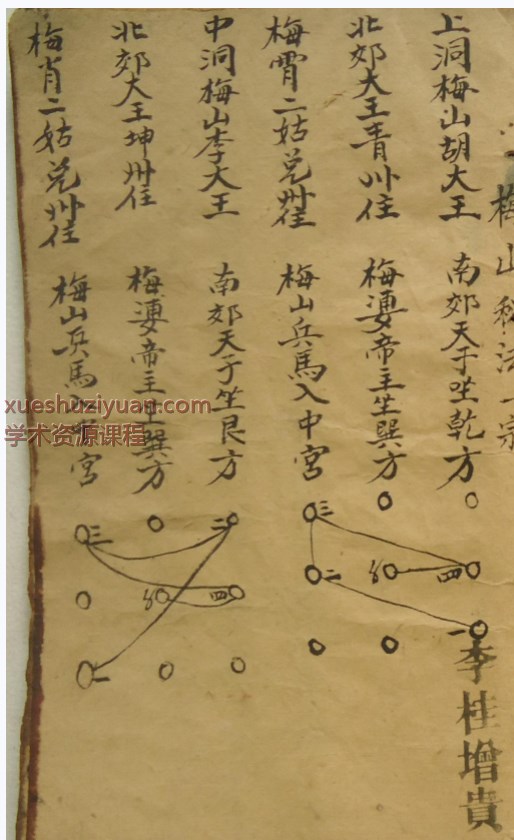 梅山秘法一宗
上洞梅山胡大王 南郊天子坐乾方
北郊大王青州住 梅婆帝主坐巽方
梅霄二姑兑州住 梅山兵馬入中宮
中洞梅山李大王 南郊天子坐艮方
北郊大王坤州住 梅婆帝主坐巽方
梅肖二姑兑州住 梅山兵馬入中宮
三
二 四
一
三 二
四
一
李桂增貴
xueshuziyuan.com
学术资源课程